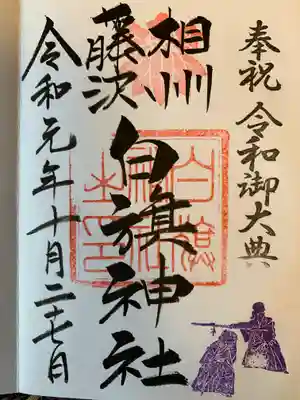 奉祝 令和御大典
相州
藤沢
白旗神社
令和元年十月二十七日